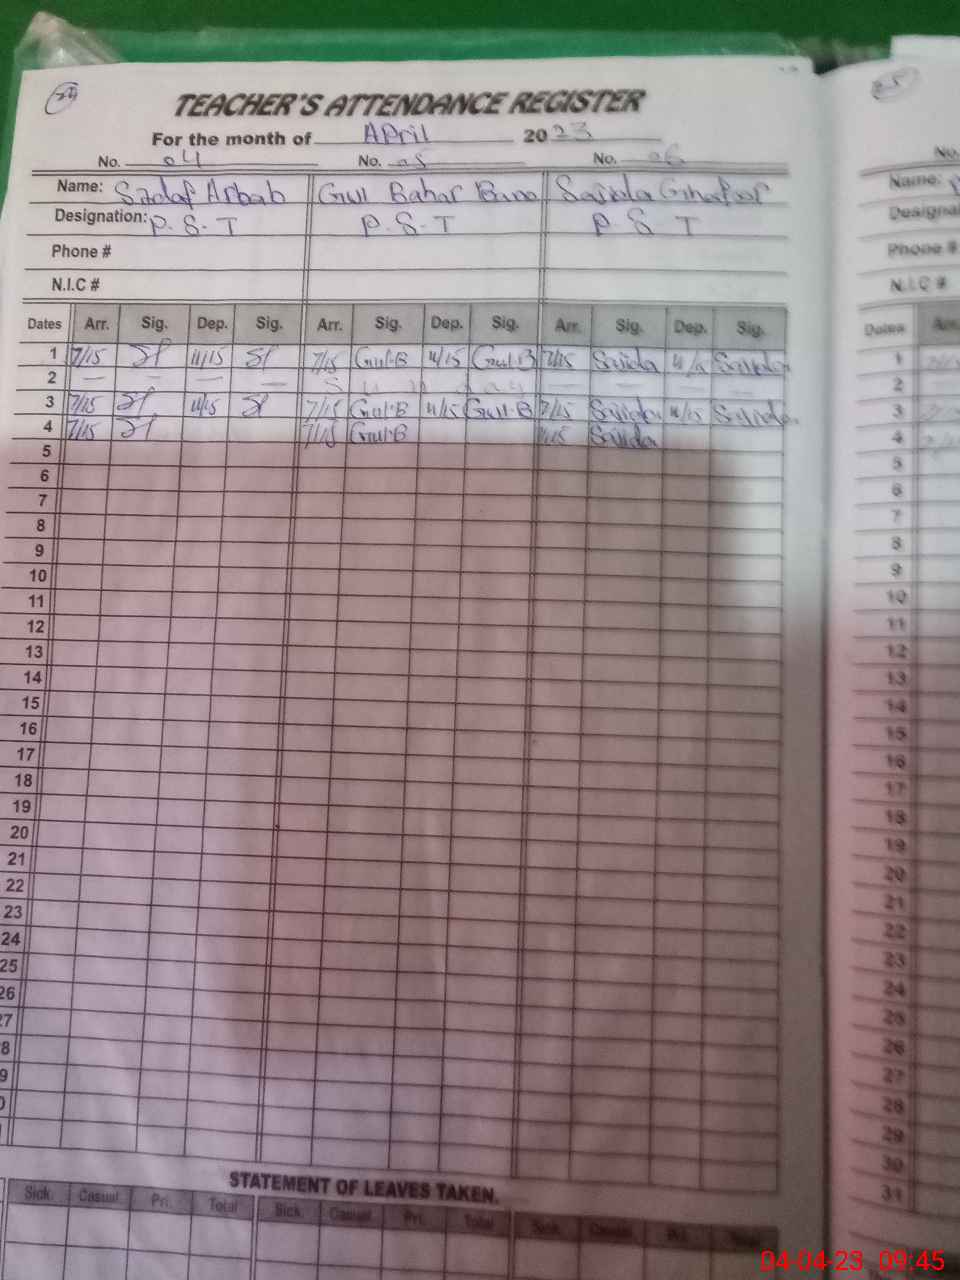 24
TEACHER'S ATTENDANCE REGISTER
For the month of April 2023
No. 04 No. 05 No. 06
Name: Arbab Gul Bahar Bano Sajida Ghafoor
Designation: P.S.T P.S.T P.S.T
Phone #
N.I.C #
Dates Arr. Sig. Dep. Sig. Arr. Sig. Dep. Sig. Arr. Sig. Dep. Sig.
1 7/15 11/15 7/15 Gul.B 11/15 Gul.B 7/15 Sajida Sajida
2 — — — — Sunday — —
3 7/15 11/15 7/15 Gul.B 11/15 Gul.B 7/15 Sajida 11/15 Sajida
4 7/15 7/15 Gul.B 7/15 Sajida
5
6
7
8
9
10
11
12
13
14
15
16
17
18
19
20
21
22
23
24
25
26
27
8
9
0
STATEMENT OF LEAVES TAKEN.
Sick. Casual Pri. Total Sick. Casual Pri. Total Sick. Casual Pri.
25
No.
Name:
Designa
Phone #
N.I.C #
Dates Arr.
1
2
3
4
5
6
7
8
9
10
11
12
13
14
15
16
17
18
19
20
21
22
23
24
25
26
27
28
29
30
31
04-04-23 09:45